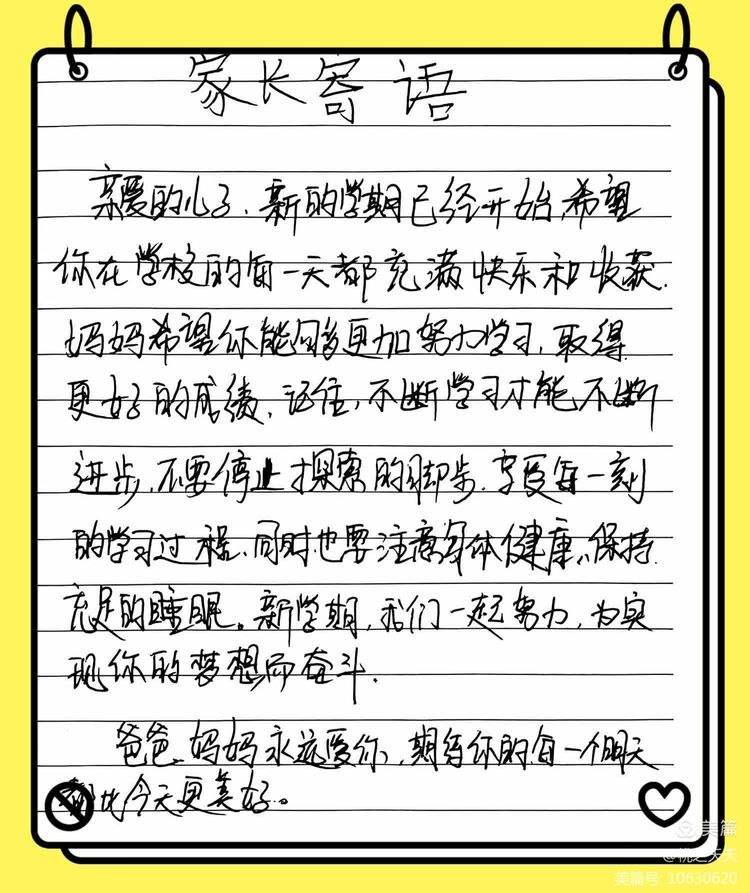 家长寄语
亲爱的儿子,新的学期已经开始,希望
你在学校的每一天都充满快乐和收获.
妈妈希望你能够更加努力学习,取得
更好的成绩,记住,不断学习才能不断
进步,不要停止探索的脚步.享受每一刻
的学习过程,同时也要注意身体健康,保持
充足的睡眠。新学期,我们一起努力,为实
现你的梦想而奋斗.
爸爸、妈妈永远爱你,期待你的每一个明天
都比今天更美好。
美篇
@桃之夭夭
美篇号:10630620